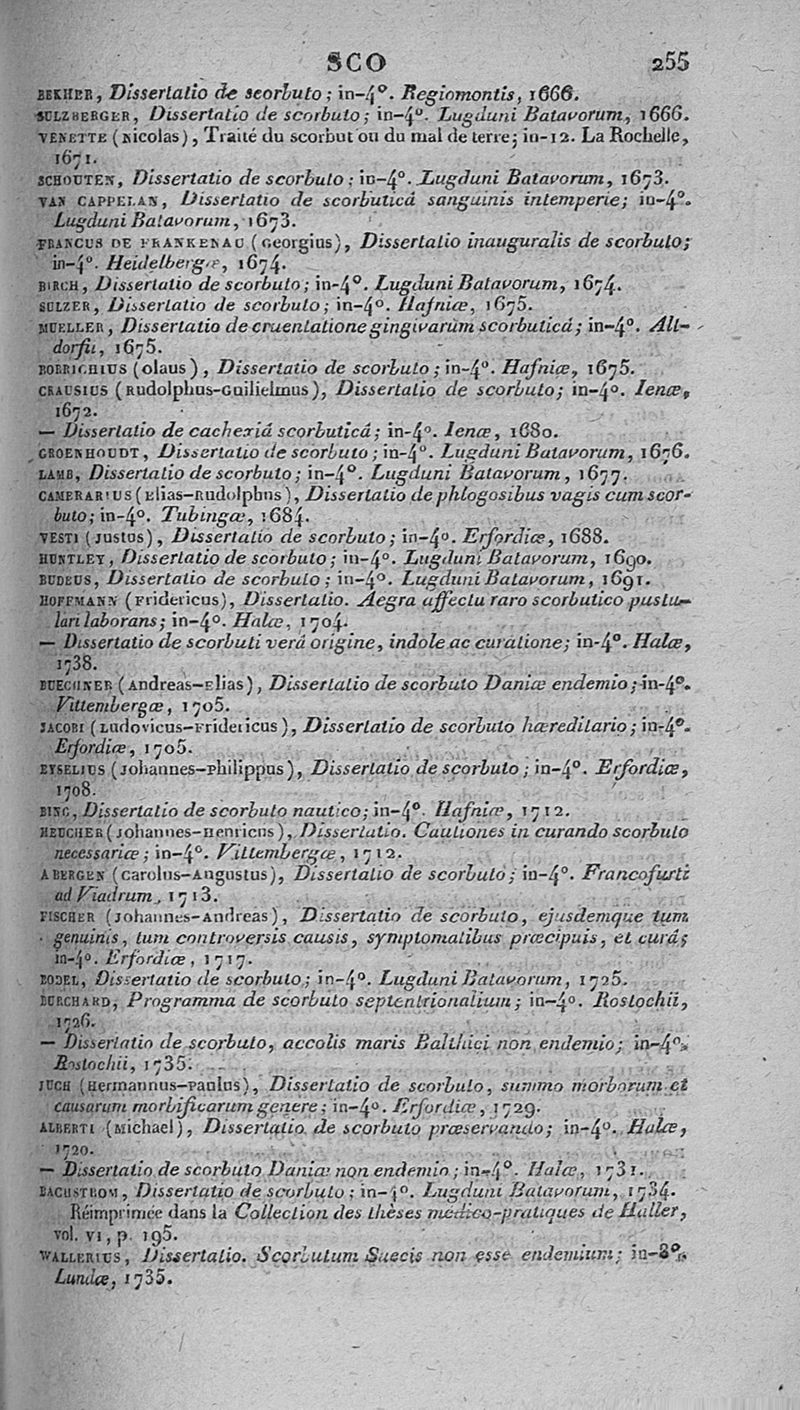 SCO 255
BEKHER, Dissertatio de scorbuto; in-4°. Regiomontis, 1666.
SULZBERGER, Dissertatio de scorbuto; in-4°. Lugduni Batavorum, 1666.
VENETTE (Nicolas), Traité du scorbut ou du mal de terre; in-12. La Rochelle,
1671.
SCHOUTEN, Dissertatio de scorbuto; in-4°. Lugduni Batavorum, 1673.
VAN CAPPELAN, Dissertatio de scorbuticá sanguinis intemperie; in-4°.
Lugduni Batavorum, 1673.
FRANCUS DE FRANKENAU (Georgius), Dissertatio inauguralis de scorbuto;
in-4°. Heidelbergæ, 1674.
BIRCH, Dissertatio de scorbuto; in-4°. Lugduni Batavorum, 1674.
SULZER, Dissertatio de scorbuto; in-4°. Hafniæ, 1675.
MUELLER, Dissertatio de cruentatione gingivarum scorbuticá; in-4°. Alt-
dorfii, 1675.
BORRICHIUS (Olaus), Dissertatio de scorbuto; in-4°. Hafniæ, 1675.
CRAUSIUS (Rudolphus-Guilielmus), Dissertatio de scorbuto; in-4°. Ienæ,
1672.
— Dissertatio de cachexiá scorbuticá; in-4°. Ienæ, 1680.
GROENHOUDT, Dissertatio de scorbuto; in-4°. Lugduni Batavorum, 1676.
LAMB, Dissertatio de scorbuto; in-4°. Lugduni Batavorum, 1677.
CAMERARIUS (Elias-Rudolphus), Dissertatio de phlogosibus vagis cum scor-
buto; in-4°. Tubingæ, 1684.
VESTI (Justus), Dissertatio de scorbuto; in-4°. Erfordiæ, 1688.
HUNTLEY, Dissertatio de scorbuto; in-4°. Lugduni Batavorum, 1690.
BUDEUS, Dissertatio de scorbuto; in-4°. Lugduni Batavorum, 1691.
HOFFMANN (Fridericus), Dissertatio. Aegra affectu raro scorbutico pustu-
lari laborans; in-4°. Halæ, 1704.
— Dissertatio de scorbuti verá origine, indole ac curatione; in-4°. Halæ,
1738.
BUECHNER (Andreas-Elias), Dissertatio de scorbuto Daniæ endemio; in-4°.
Vittembergæ, 1705.
JACOBI (Ludovicus-Fridericus), Dissertatio de scorbuto hæreditario; in-4°.
Erfordiæ, 1705.
EYSELIUS (Johannes-Philippus), Dissertatio de scorbuto; in-4°. Erfordiæ,
1708.
BING, Dissertatio de scorbuto nautico; in-4°. Hafniæ, 1712.
HEUCHER (Johannes-Henricus), Dissertatio. Cautiones in curando scorbuto
necessariæ; in-4°. Vittembergæ, 1712.
A BERGEN (Carolus-Augustus), Dissertatio de scorbuto; in-4°. Francofurti
ad Viadrum, 1713.
FISCHER (Johannes-Andreas), Dissertatio de scorbuto, ejusdemque tum
genuinis, tum controversis causis, symptomatibus præcipuis, et curá;
in-4°. Erfordiæ, 1717.
BODEL, Dissertatio de scorbuto; in-4°. Lugduni Batavorum, 1725.
BURCHARD, Programma de scorbuto septentrionalium; in-4°. Rostochii,
1726.
— Dissertatio de scorbuto, accolis maris Balthici non endemio; in-4°.
Rostochii, 1735.
JUCH (Hermannus-Paulus), Dissertatio de scorbuto, summo morborum et
causarum morbificarum genere; in-4°. Erfordiæ, 1729.
ALBERTI (Michael), Dissertatio de scorbuto præservando; in-4°. Halæ,
1720.
— Dissertatio de scorbuto Daniæ non endemio; in-4°. Halæ, 1731.
BACHSTROM, Dissertatio de scorbuto; in-4°. Lugduni Batavorum, 1734.
Réimprimée dans la Collection des thèses médico-pratiques de Haller,
vol. VI, p. 195.
WALLERIUS, Dissertatio. Scorbutum Suecis non esse endemium; in-8°.
Lundæ, 1735.